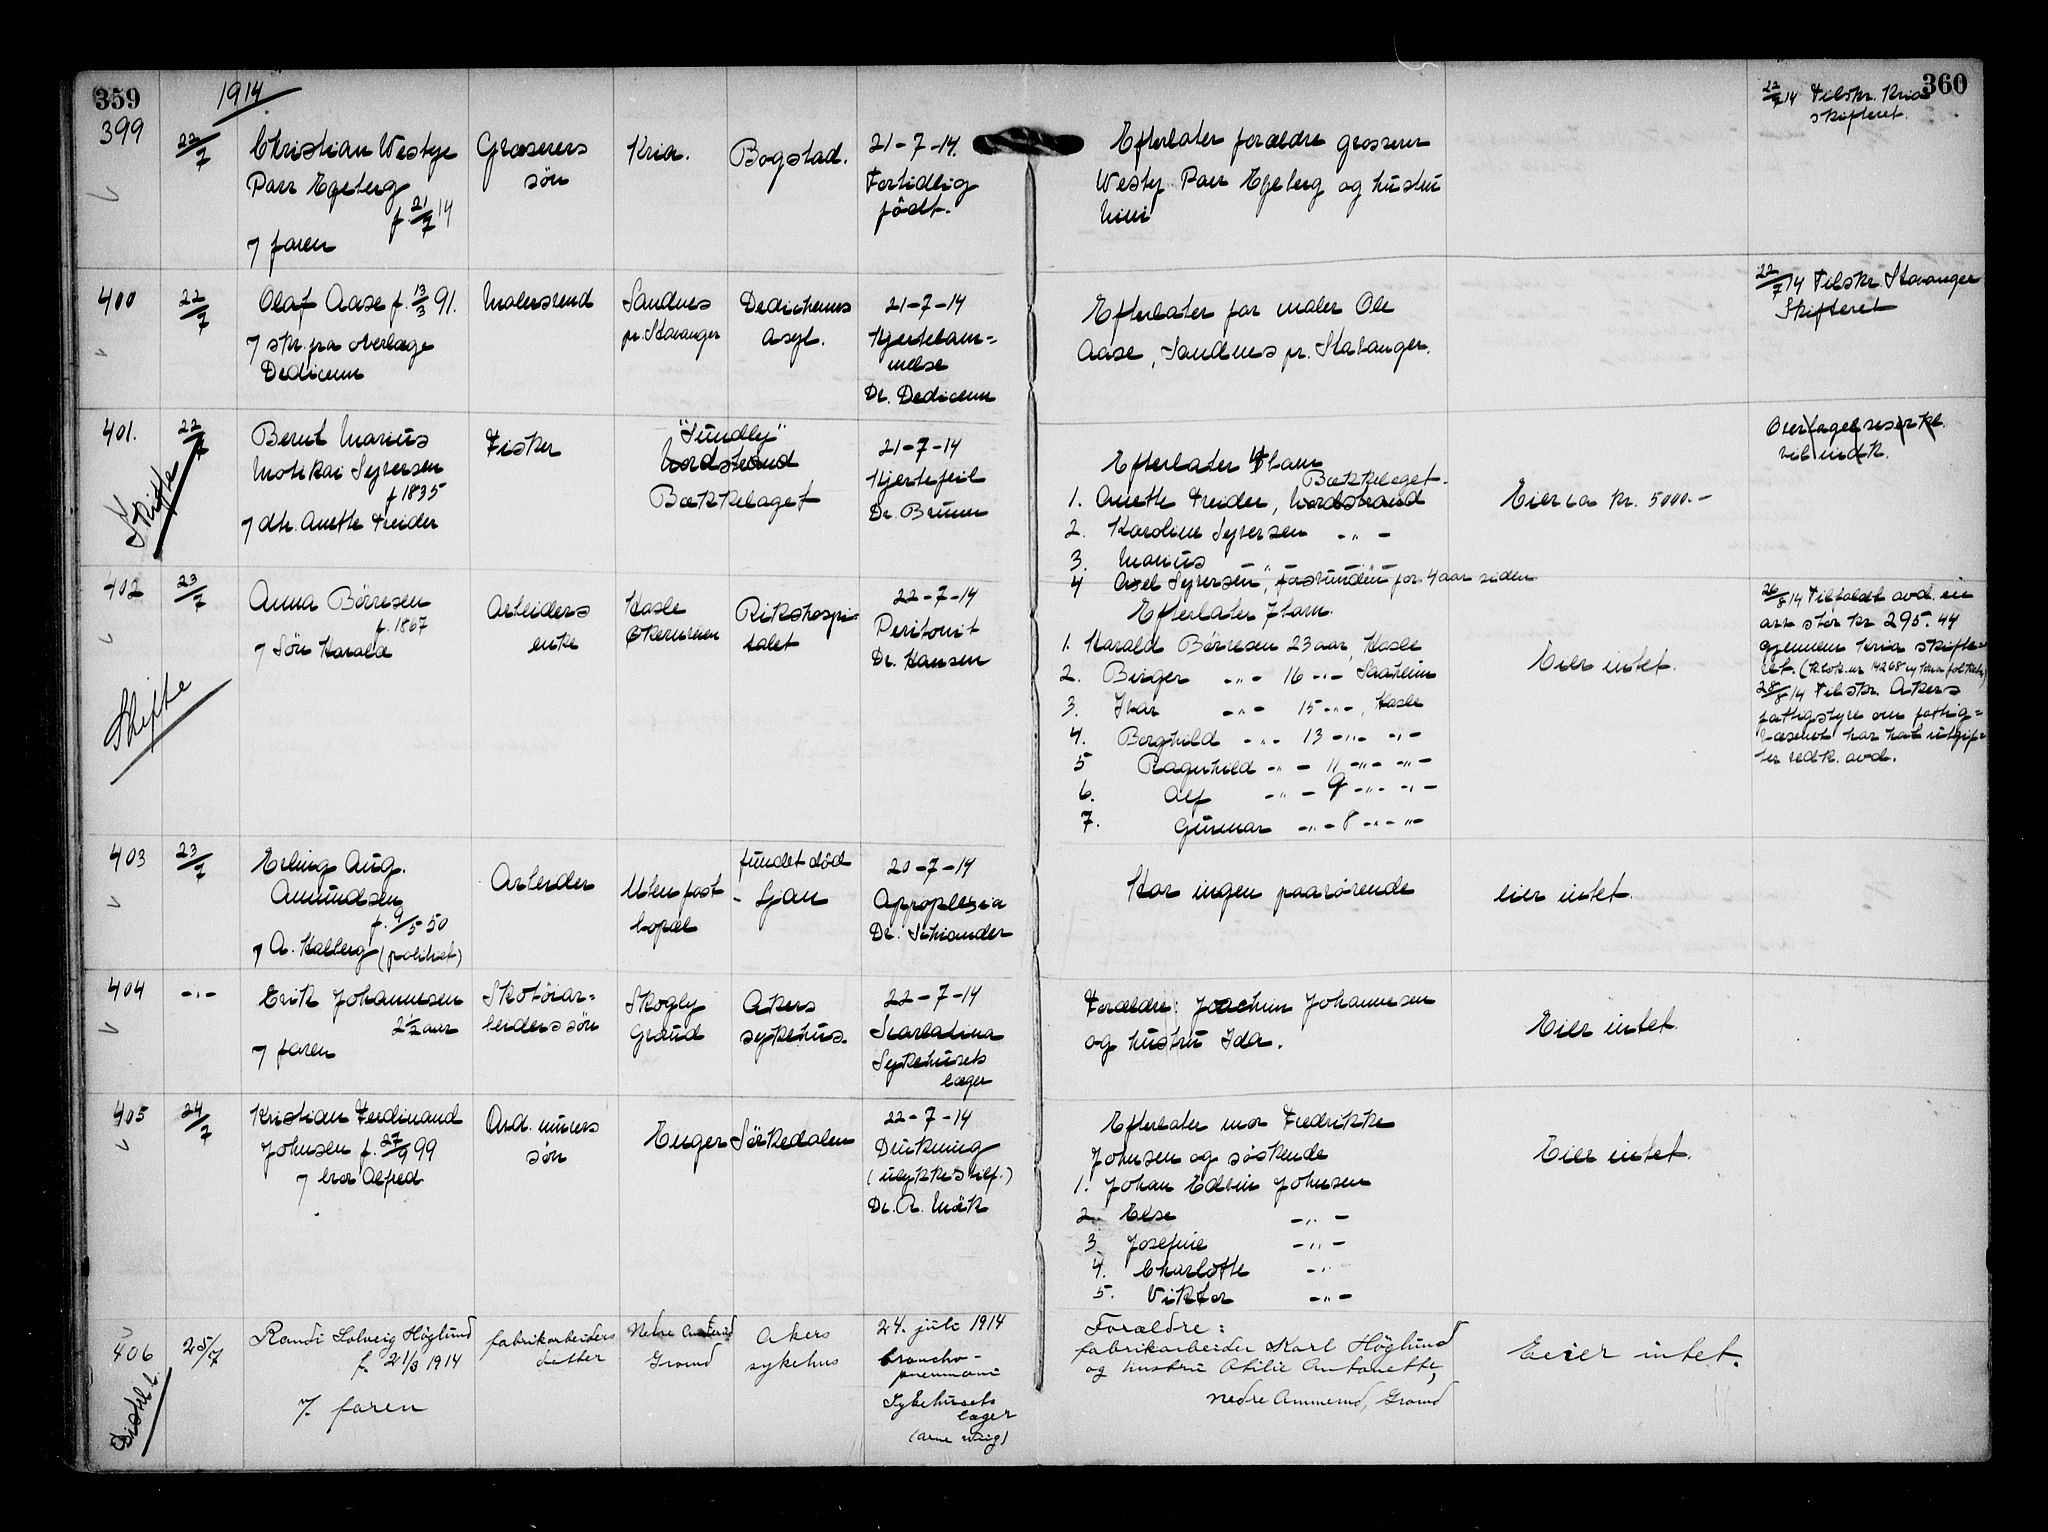 359
1914
360
399
22/7
Christian Westye
Parr Egeberg
f. 21/7 14
7 faren
Grosserers
sön
Kria.
Bogstad.
21-7-14.
Fortidlig
födt.
Efterlater forældre grosserer
Westy Parr Egeberg og hustru
Mimi
22/7 14 Tilskr. Kria
skifteret.
400
22/7
Olaf Aase f. 13/3 91.
7 skr. fra overlæge
Dedicem
Malersvend
Sandnes
pr. Stavanger
Dedichens
asyl.
21-7-14
Hjertelam=
melse
Dr. Dedicem
Efterlater far maler Ole
Aase, Sandnes pr. Stavanger.
22/7 14 Tilskr. Stavanger
Skifteret
401.
22/7
Skifte
Bernt Marius
Motikai Syversen
f 1835
7 dtr. Anette Treider
Fisker
"Sundly"
Nordstrand
Bækkelaget
21-7-14
Hjertefeil
Dr. Bruun
Efterlater 4 barn
Bækkelaget.
1. Anette Treider, Nordstrand
2. Karoline Syversen -"-
3. Marius -"-
4 Axel Syversen, forsvundēn for 4 aar siden
Eier ca kr. 5000.-
til indk.
402
23/7
Skifte
Anna Börresen
f. 1867
7 Sön Harald
Arbeiders
enke
Hasle
Ökernveien
Rikshospi-
talet
22-7-14
Peritonit
Dr. Hansen
Efterlater 7 barn.
1. Harald Börresen 23 aar, Hasle
2. Birger -"- 16 -"- Saaheim
3. Ivar -"- 15 -"-, Hasle
4. Borghild -"- 13 -"- -"-
5 Ragnhild -"- 11 -"- -"-
6. Alf -"- 9 -"- -"-
7. Gunnar -"- 8 -"- -"-
Eier intet.
26/8 14 Tilfaldt avd. en
arv stor kr 295.44
gjennem Kria skifte=
ret.
28/8 14 Tilskr. Akers
fattigstyre om fattig=
væsenet har hat utgif=
ter vedk. avd.
403
23/7
Erling Aug.
Amundsen
f. 9/5 50
7 A. Halberg (politiet)
Arbeider
Uten fast
bopæl
fundet död
- Ljan
20-7-14
Apoplexia
Dr. Schiander
Har ingen paarörende
eier intet.
404
-"-
Erik Johannesen
2 1/2 aar
7 faren
Skotöiar=
beiders sön
Skogly
Grorud
Akers
sykehus.
22-7-14
Scarlatina
Sykehusets
læger
Foræeldre: Joachim Johannesen
og hustru Ida.
Eier intet.
405
24/7
Kristian Ferdinand
Johnsen f. 27/9 99
7 bror Alfred
Ord. muers
sön
Enger
Sörkedalen
22-7-14
Drukning
(ulykkestilf.)
Dr. A. Mörk
Efterlater mor Fredrikke
Johnsen og söskende
1. Johan Edvin Johnsen
2. Else -"-
3. Josefine -"-
4. Charlotte -"-
5. Viktor -"-
Eier intet.
406
25/7
Randi Solveig Höglund
f. 21/3 1914
7. faren
fabrikarbeiders
datter
Nedre Ammerud
Grorud
Akers
sykehus
24. juli 1914
broncho-
pneumoni
Sykehusets
læger
(Arne Wiig)
Forældre:
fabrikarbeider Karl Höglund
og hustru Otilie Antonette,
Nedre Ammerud, Grorud
Eier intet.